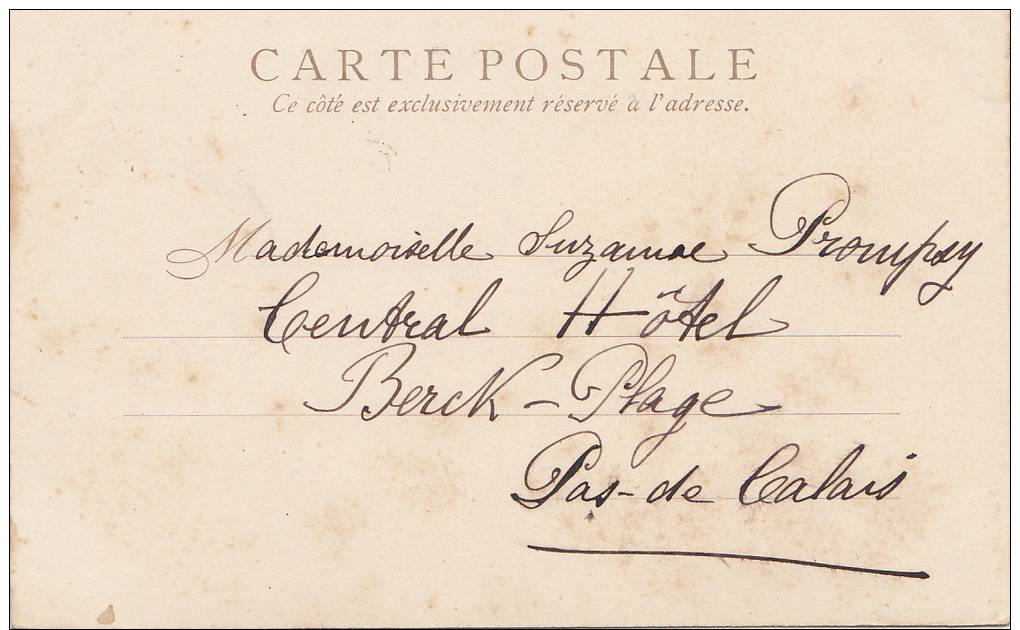 CARTE POSTALE
Ce côté est exclusivement réservé à l'adresse.
Mademoiselle Suzanne Prompsy
Central Hôtel
Berck - Plage
Pas-de Calais